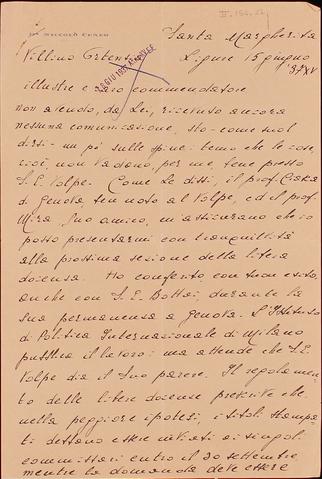 II. 156. 22
Dr. Niccolò Cuneo
Santa Margherita
Villino Ortensia
Ligure 15 giugno
37 XV
GIU 1937
illustre e caro commendatore
non avendo, da Lei, ricevuto ancora
nessuna comunicazione, sto - come suol
dirsi - un po' sulle spine: temo che le cose,
cioè, non vadano, per me, bene presso
S. E. Volpe. Come Le dissi, il prof.
di Genova, ben noto al Volpe, ed il prof.
Mira, Suo amico, m'assicurano che io
posso presentarmi con tranquillità
alla prossima sezione della libera
docenza. Ho conferito, con buon esito,
anche con S. E. Bottai, durante la
sua permanenza a Genova. L'Istituto
di Politica Internazionale di Milano
pubblica il lavoro: ma attende che S. E.
Volpe dia il Suo parere. Il regolamen-
to delle libere docenze prescrive che,
nella peggiore ipotesi, i titoli stampa-
ti debbano essere inviati ai singoli
commissari entro il 20 settembre,
mentre la domanda deve essere